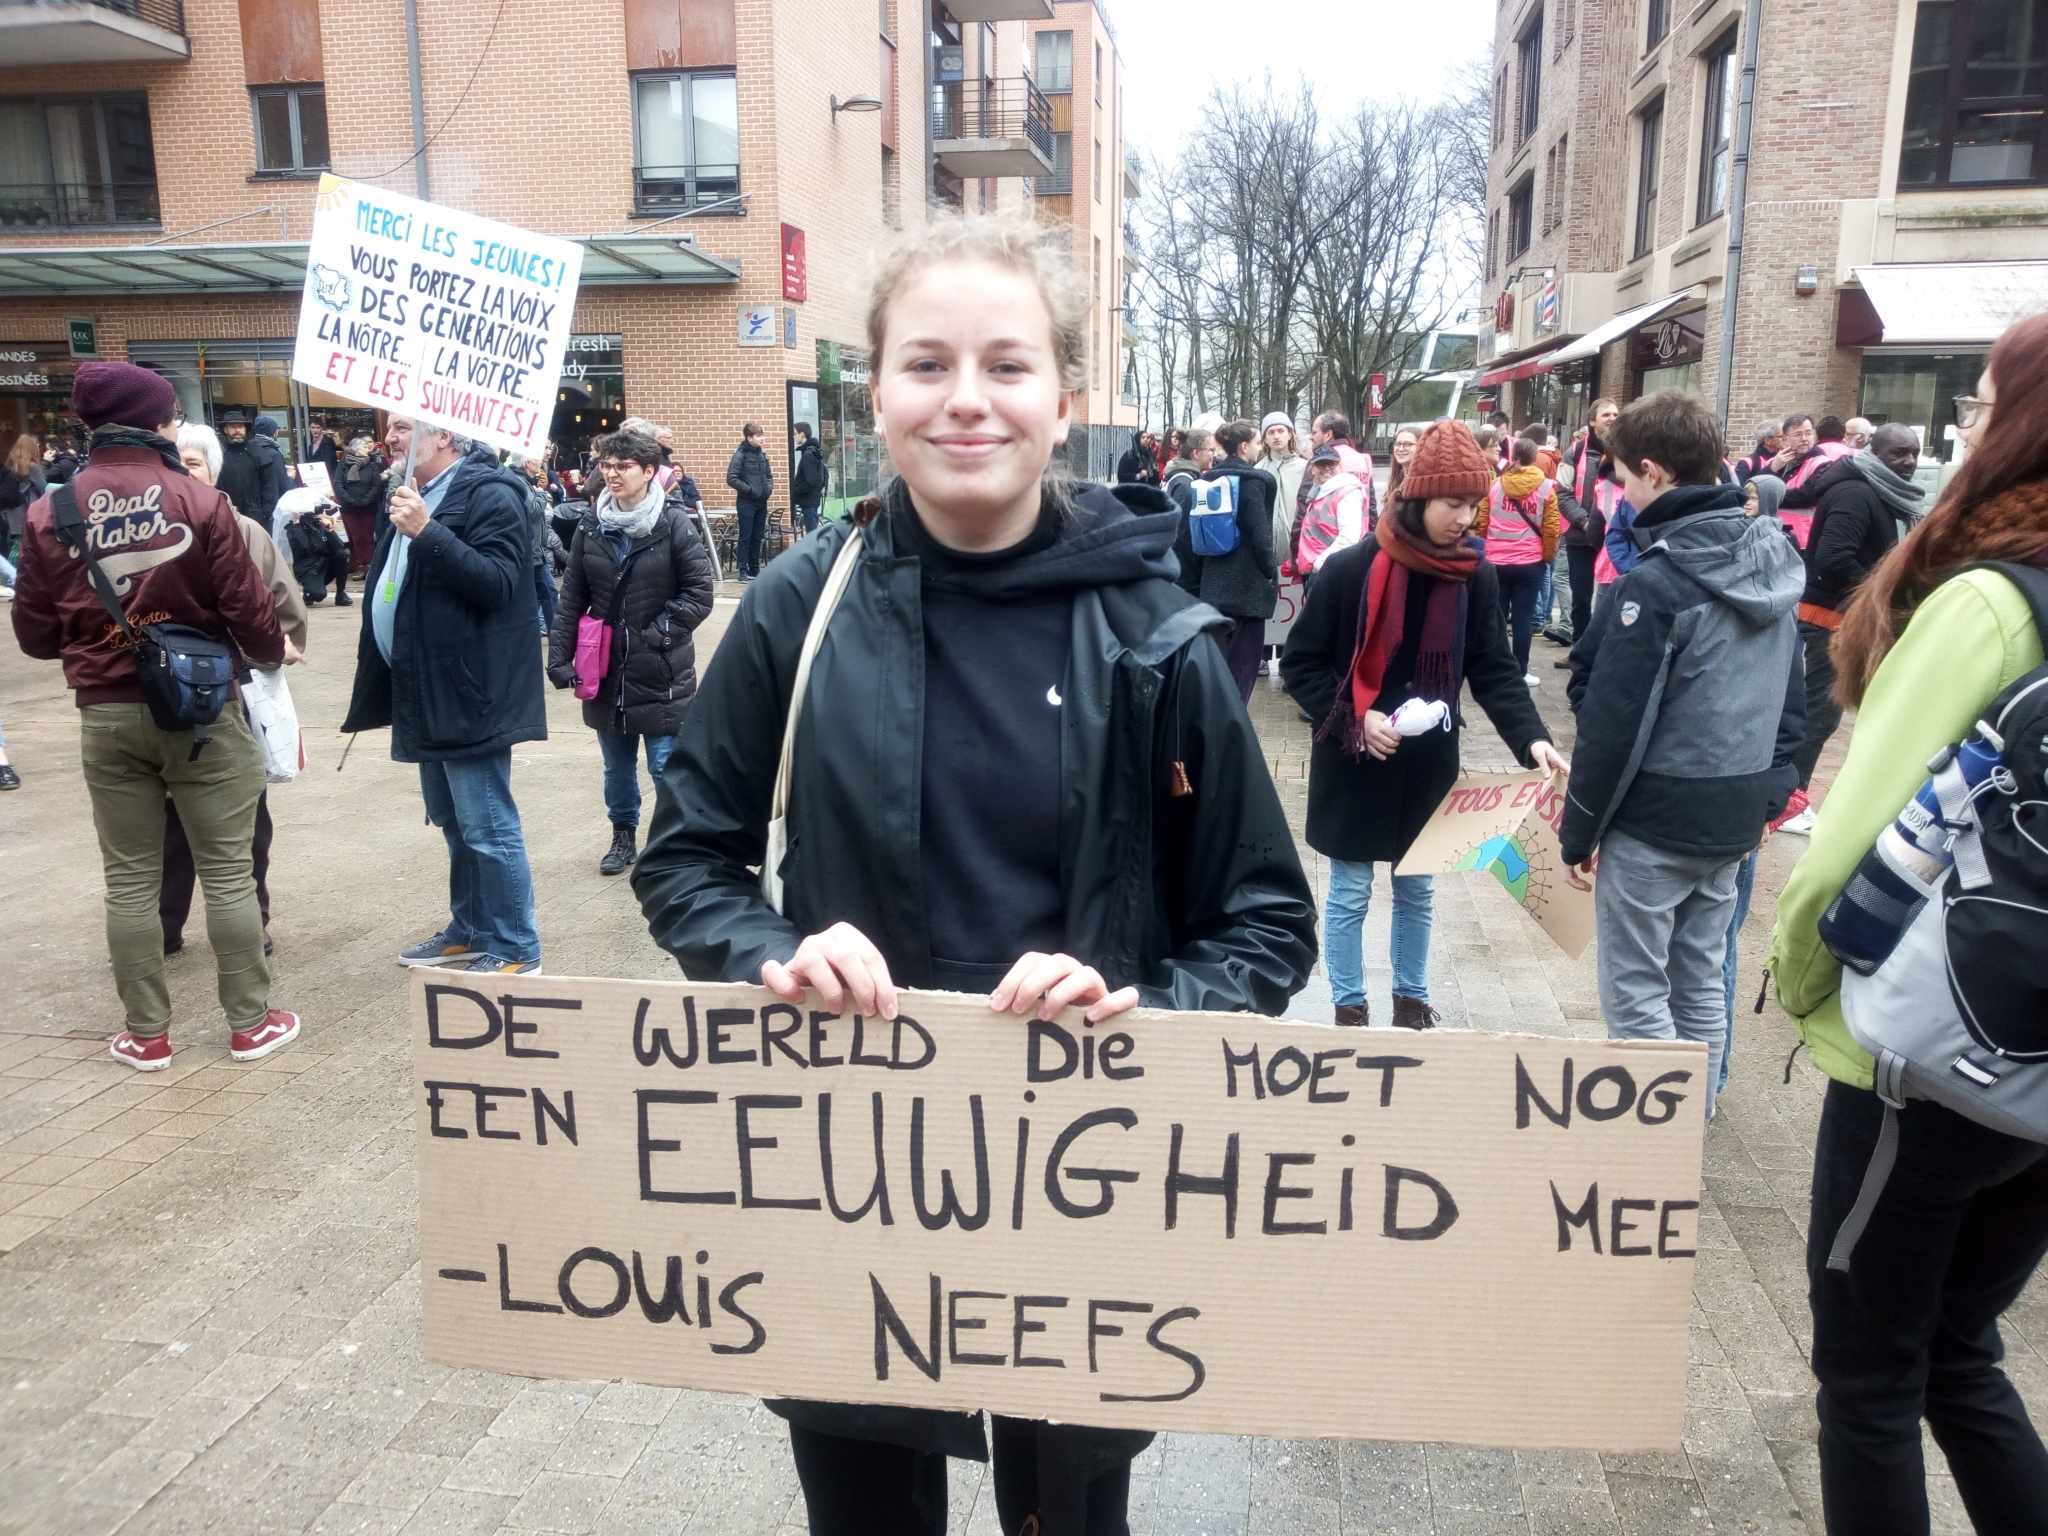 MERCi LES JEUNES!
VOUS PORTEZ LA VOIX
DES GENERATIONS
LA NÔTRE... LA VÔTRE...
ET LES SUIVANTES!
Deal
Maker
fresh
ANDES
SSINÉES
STEWARD
TOUS ENS
DE WERELD Die MOET NOG
EEN EEUWiGHEiD MEE
-LOUiS NEEFS